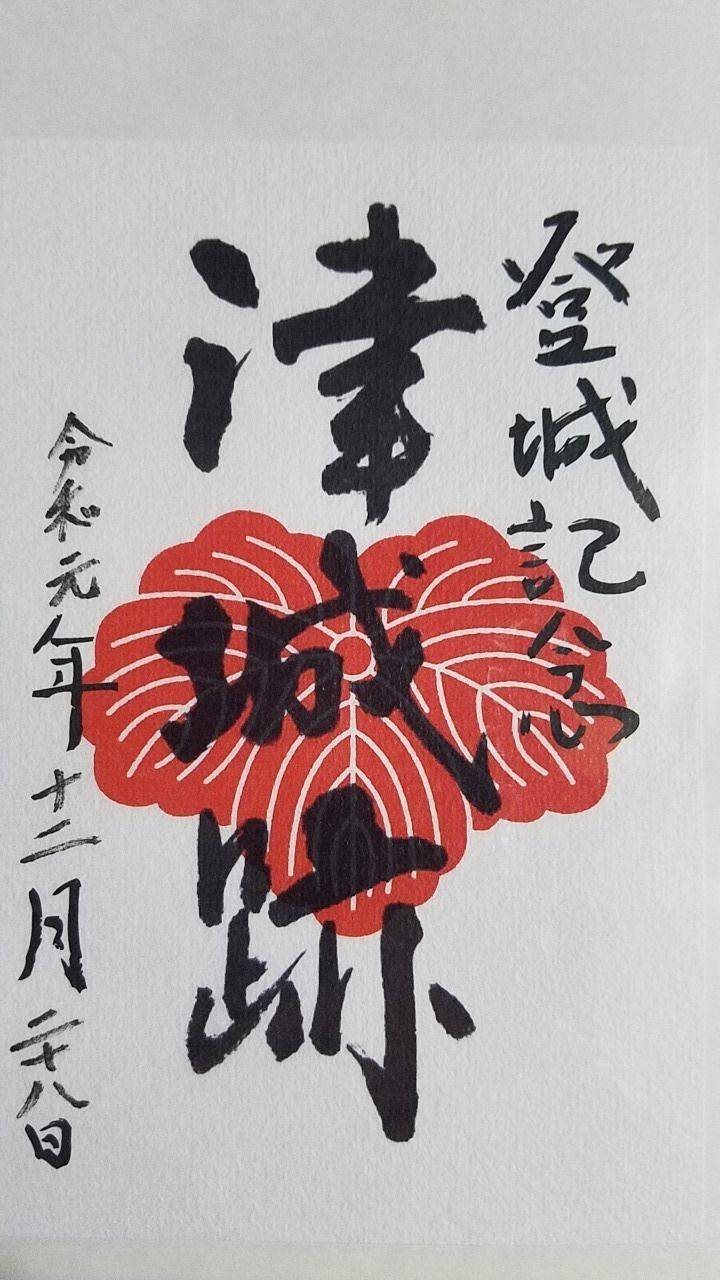 登城記念
津城跡
令和元年十二月二十八日